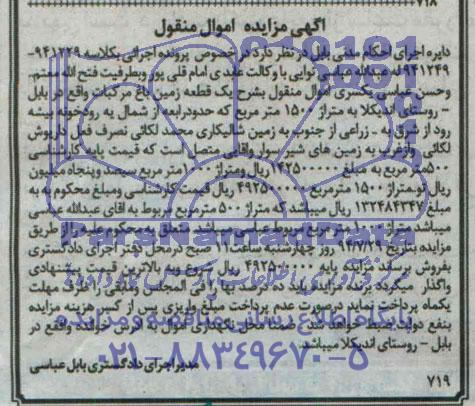 ۷۱۸
آگهی مزایده اموال منقول
دایره اجرای احکام مدنی بابل در نظر دارد در خصوص پرونده اجرایی بکلاسه ۹۴۱۲۲۹-
۹۴۱۲۴۹ له عبدالله عباسی نوایی با وکالت عابدی امام قلی پور و بطرفیت فتح الله معتمد
وحسن عباسی یکسری اموال منقول بشرح یک قطعه زمین باغ مرکبات واقع در بابل
- روستای اندیکلا به متراژ ۱۵۰۰ متر مربع که حدود اربعه از شمال به رودخانه بیشه
رود از شرق به - زراعی از جنوب به زمین شالیکاری محمد لکائی تصرف فعل داریوش
لکائی واز غرب به زمین های شیر سوار واقلتی متصل است که قیمت پایه کارشناسی
۵۰۰ متر مربع به مبلغ ریال ومتراژ ۱۰۰۰ متر مربع سیصد وپنجاه میلیون
ریال و متراژ ۱۵۰۰ مترمربع ۴۹۲۵۰۰۰۰۰ ریال قیمت کارشناسی ومبلغ محکوم به به
مبلغ ۱۳۲۴۸۴۳۴۷ ریال میباشد که متراژ ۵۰۰ مترمربع مربوط به اقای عبدالله عباسی
میباشد متراژ ۱۰۰۰ متر مربع مربوط عباسی میباشد متعلق به محکوم علیه را از طریق
مزایده بتاریخ ۹۴/۷/۲۹ روز چهارشنبه ساعت ۱۱ صبح در محل دفتر اجرای دادگستری
بفروش برساند مزایده پایه ۴۹۲۵۰۰۰۰۰ ریال شروع وبه بالاترین قیمت پیشنهادی
واگذار میگردد برنده مزایده باید ده درصد بها را فی المجلس ومابقی را ظرف مهلت
یکماه پرداخت نماید درصورت عدم پرداخت مبلغ واریزی پس از کسر هزینه مزایده
بنفع دولت ضبط خواهد شد. ضمنا محل نگهداری اموال در آدرس خوانده واقع در
بابل - روستای اندیکلا میباشد.
مدیر اجرای دادگستری بابل عباسی
۷۱۹
پایگاه اطلاع رسانی مناقصه و مزایده
۰۲۱-۸۸۳۴۹۶۷۰-۵